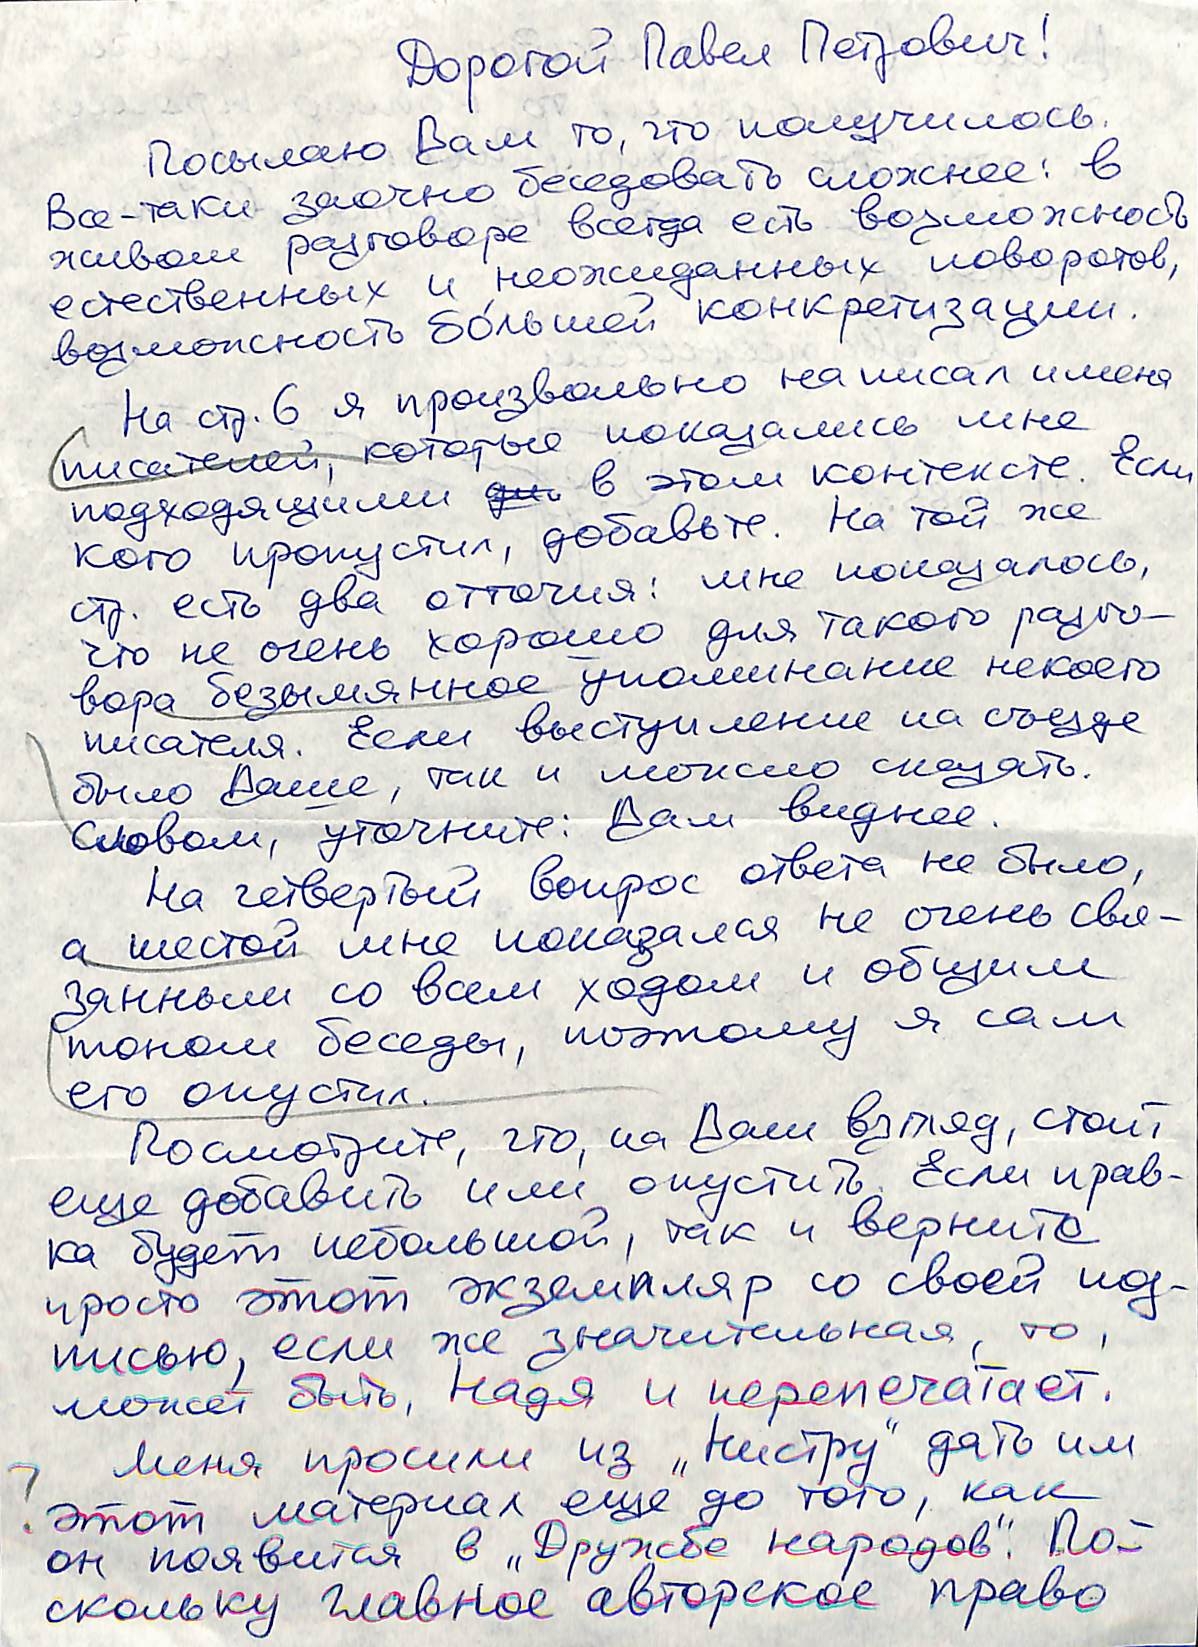 Дорогой Павел Петрович!
Посылаю Вам то, что получилось.
Все-таки заочно беседовать сложнее: в
живом разговоре всегда есть возможность
естественных и неожиданных поворотов,
возможность бо́льшей конкретизации.
На стр. 6 я произвольно написал имена
писателей, которые показались мне
подходящими в этом контексте. Если
кого пропустил, добавьте. На той же
стр. есть два отточия: мне показалось,
что не очень хорошо для такого разго-
вора безымянное упоминание некоего
писателя. Если выступление на съезде
было Ваше, так и можно сказать.
Словом, уточните: Вам виднее.
На четвертый вопрос ответа не было,
а шестой мне показался не очень свя-
занным со всем ходом и общим
тоном беседы, поэтому я сам
его опустил.
Посмотрите, что, на Ваш взгляд, стоит
еще добавить или опустить. Если прав-
ка будет небольшой, так и верните
просто этот экземпляр со своей под-
писью, если же значительная, то,
может быть, Надя и перепечатает.
Меня просили из „Нистру" дать им
? этот материал еще до того, как
он появится в „Дружбе народов". По-
скольку главное авторское право